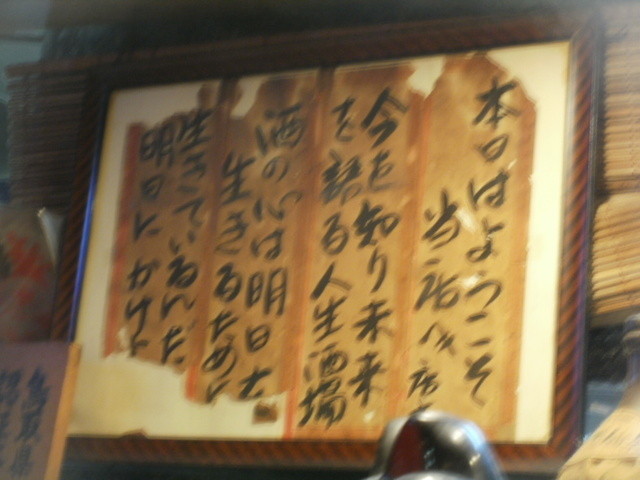 本日はようこそ
当店へ
今を知り未来
を語る人生酒場
酒の心は明日を
生きるために
生きているんだ
明日にかけ
鳥取県